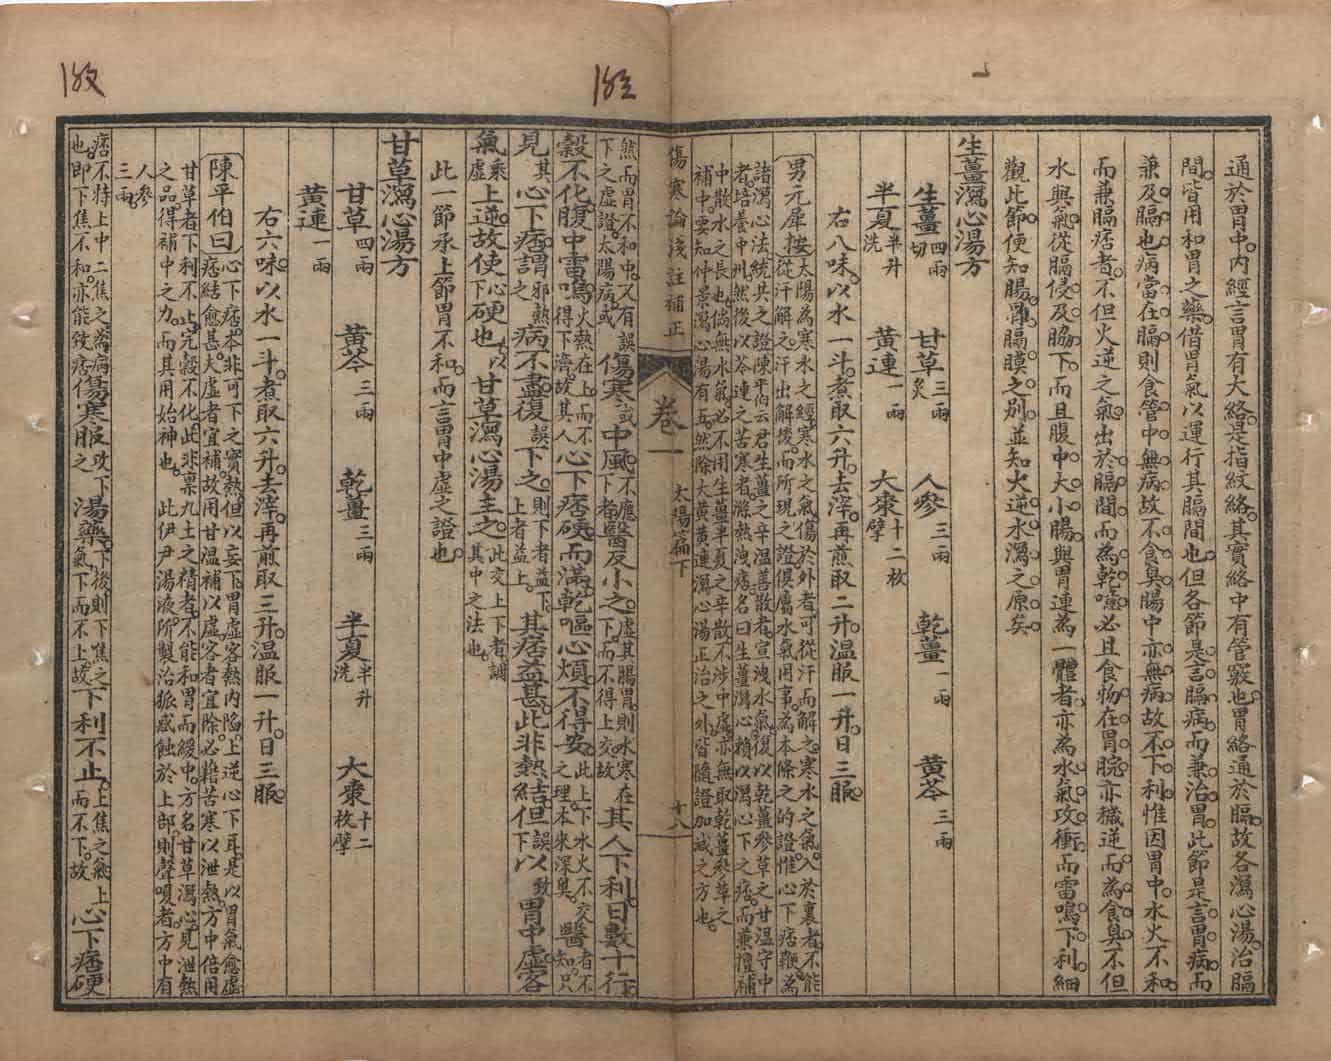 通於胃中內經言胃有大絡是指紋絡其實絡中有管竅也胃絡通於膈故各瀉心湯治膈
間皆用和胃之藥借胃氣以運行其膈間也但各節是言膈病而兼治胃此節是言胃病而
兼及膈也病當在膈則食管中無病故不食臭腸中亦無病故不下利惟因胃中水火不和
而兼膈痞者不但火逆之氣出於膈間而為乾噫必且食物在胃脘亦穢逆而為食臭不但
水與氣從膈侵及脇下而且腹中大小腸與胃連為一體者亦為水氣攻衝而雷鳴下利細
觀此節便知腸胃膈膜之別並知火逆水瀉之原矣
生薑瀉心湯方
生薑四兩切 甘草三兩炙 人參三兩 乾薑一兩 黃芩三兩
半夏半升洗 黃連一兩 大棗十二枚擘
右八味以水一斗煮取六升去滓再煎取二升溫服一升日三服
男元犀按太陽為寒水之經寒水之氣傷於外者可從汗而解之寒水之氣入於裏者不能
從汗解之汗出解後而所現之證俱屬水氣用事為本條之的證惟心下痞鞕為
諸瀉心法統共之證陳平伯云君生薑之辛溫善散者宣洩水氣復以乾薑參草之甘溫守中
者培養中州然後以芩連之苦寒者滌熱洩痞名曰生薑瀉心賴以瀉心下之痞而兼擅補
中散水之長也倘無水氣必不用生薑半夏之辛散不涉中虛亦無取乾薑參草之
補中要知仲景瀉心湯有五然除大黃黃連瀉心湯正治之外皆隨證加減之方也
傷寒論淺註補正 卷一 太陽篇下 十八
然而胃不和中又有誤
下之虛證太陽病或傷寒或中風不應下者醫反小之虛其腸胃則水寒在
下而不得上交故其人下利日數十行
穀不化腹中雷鳴火熱在上而不
得下濟故其人心下痞硬而滿乾嘔心煩不得安此上下水火不交者不
之理本來深奧醫知只
見其心下痞謂邪熱
之病不盡復誤下之則下者益下
上者益上其痞益甚此非熱結但誤下以致胃中虛客
氣乘
虛上逆故使心
下硬也以甘草瀉心湯主之此交上下者調
其中之法也
此一節承上節胃不和而言胃中虛之證也
甘草瀉心湯方
甘草四兩 黃芩三兩 乾薑三兩 半夏半升洗 大棗十二枚擘
黃連一兩
右六味以水一斗煮取六升去滓再煎取三升溫服一升日三服
陳平伯曰心下痞本非可下之實熱但以妄下胃虛客熱內陷上逆心下耳是以胃氣愈虛
痞結愈甚夫虛者宜補故用甘溫補以虛客者宜除必藉苦寒以泄熱方中倍用
甘草者下利不止完穀不化此非稟九土之精者不能和胃而緩中方名甘草瀉心見泄熱
之品得補中之力而其用始神也 此伊尹湯液所製治狐惑蝕於上部則聲嗄者方中有
人參
三兩
痞不特上中二焦之為病
也即下焦不和亦能致痞傷寒服攻下
之湯藥下後則下焦之
氣下而不上故下利不止上焦之氣上
而不下故心下痞硬